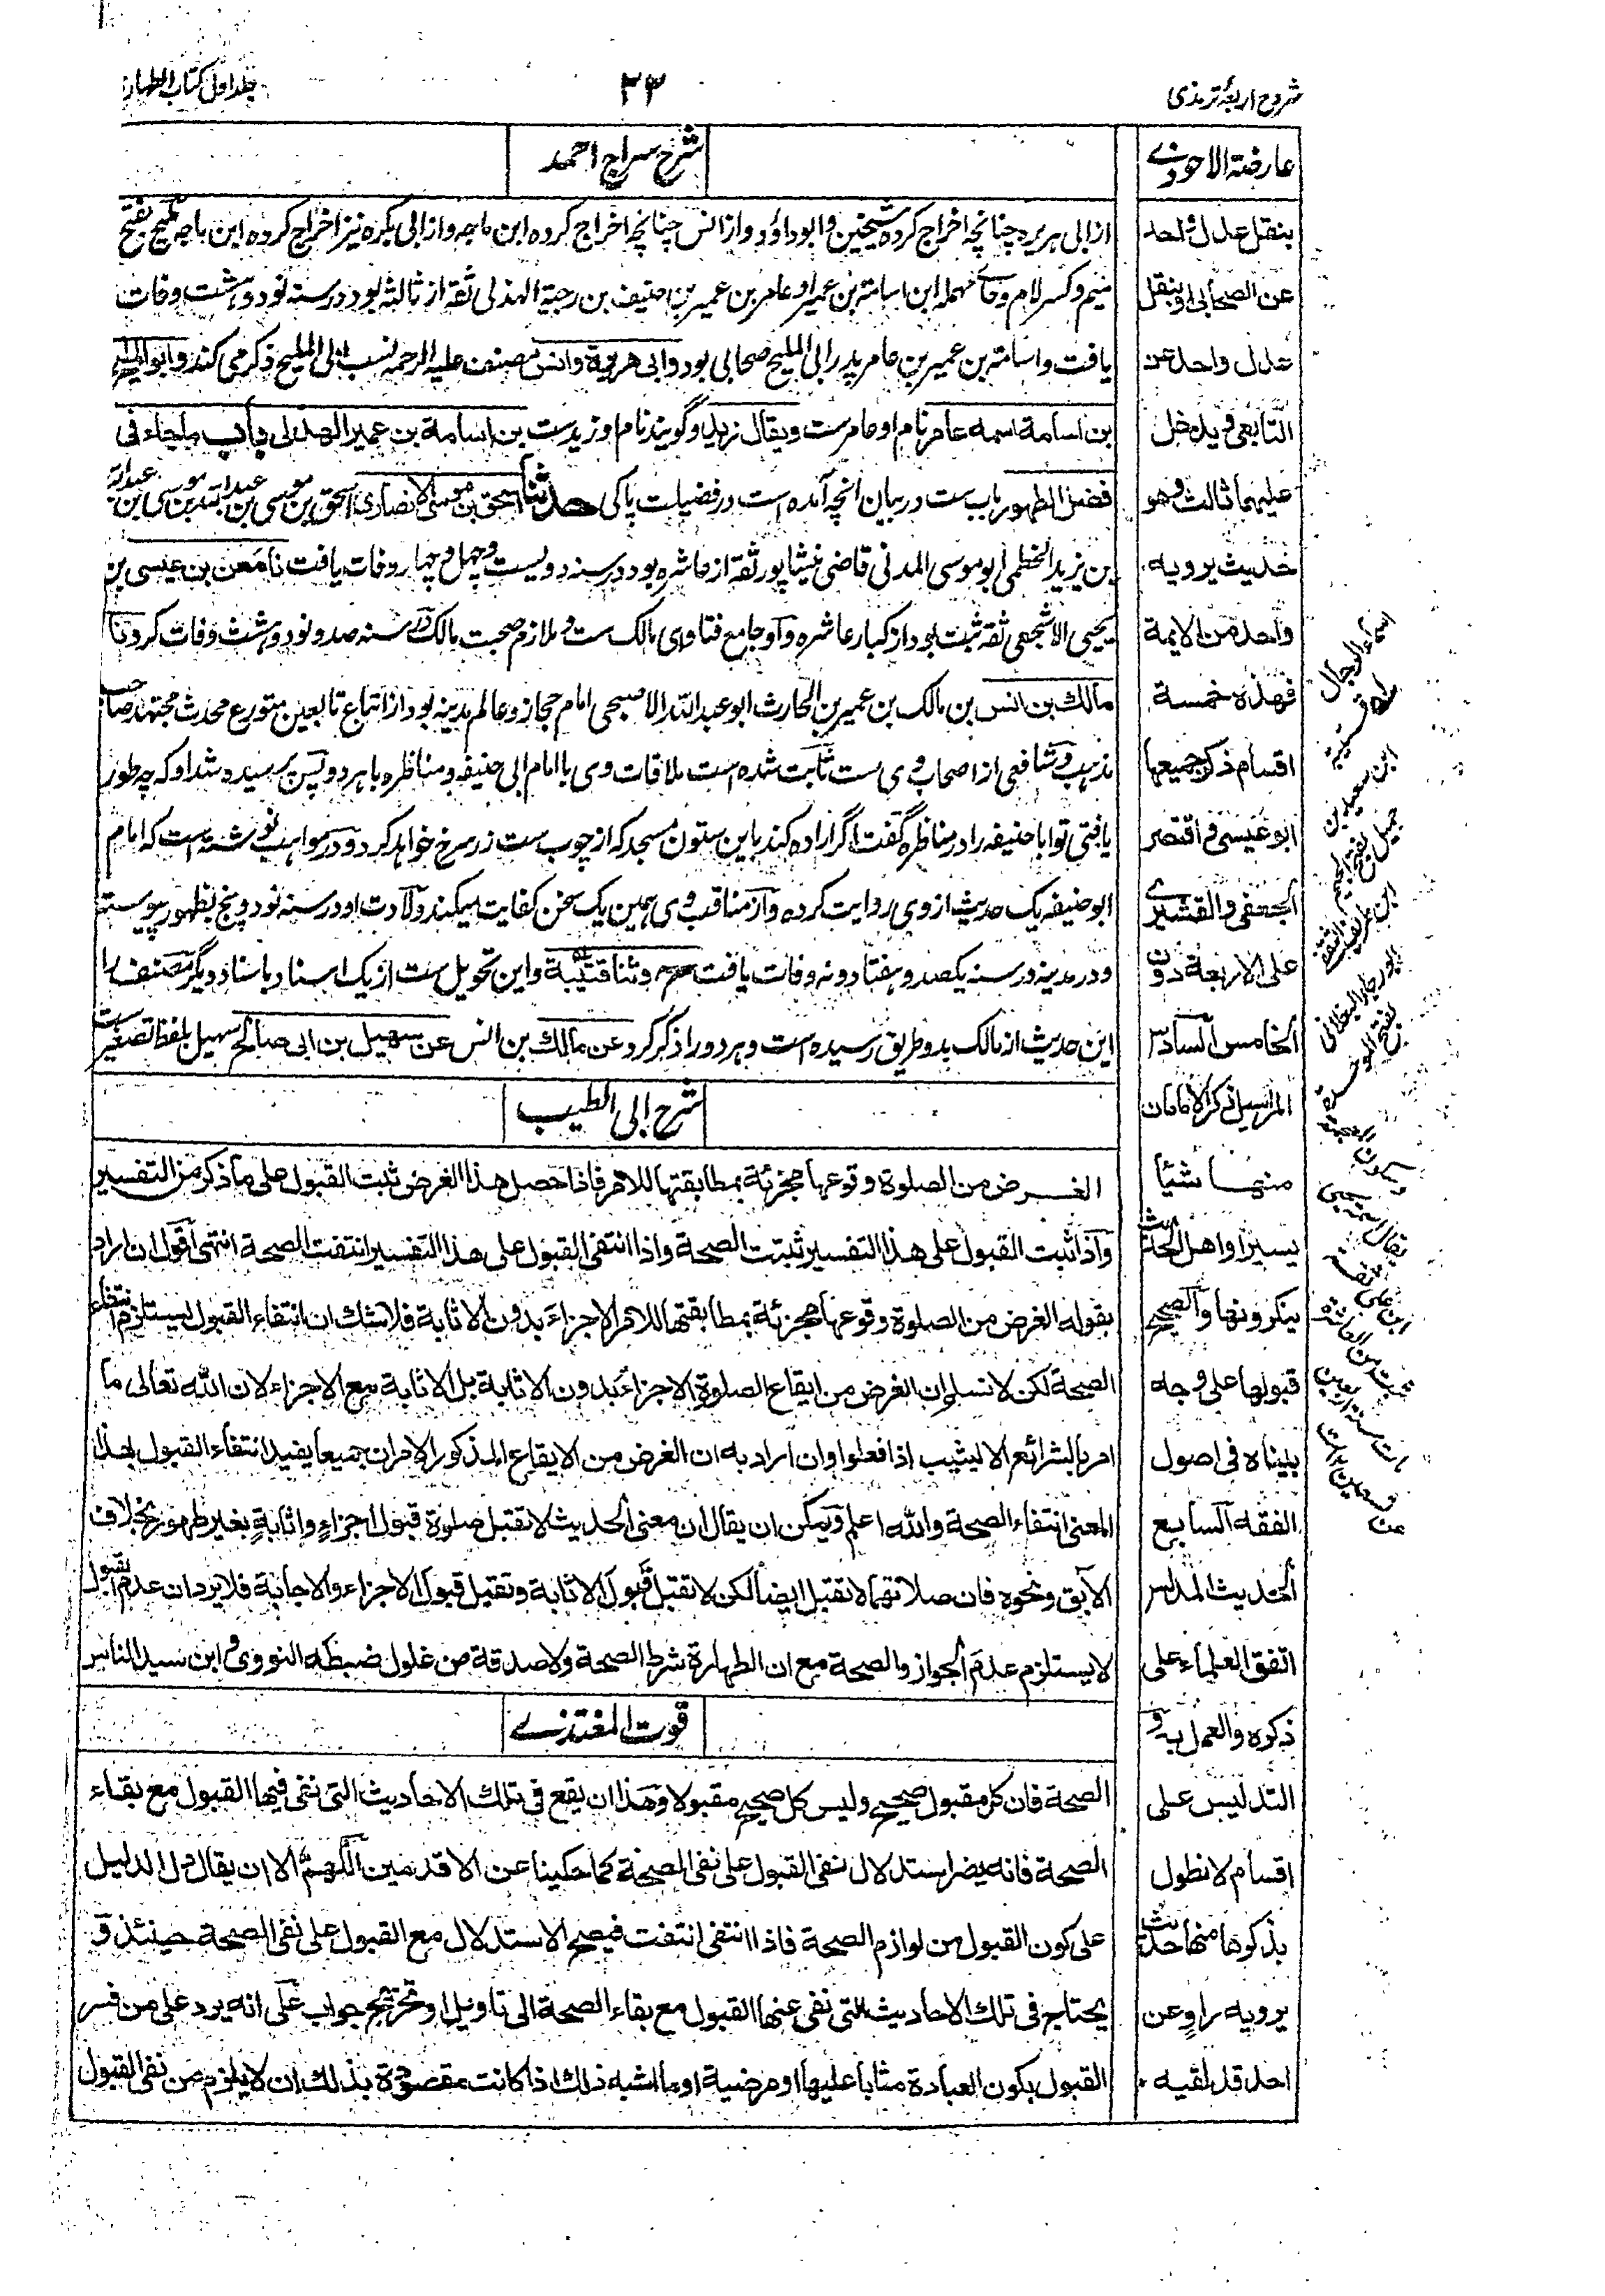 شروح اربعۂ ترمذی
۳۳
جلد اول کتاب الطهارة
عارضة الاحوذے
بنقل عدل واحد
عن الصحابی او بنقل
عدل واحد عن
التابعی و یدخل
علیهما ثالث وهو
حدیث یرویه
واحد من الایمة
فهذه خمسة
اقسام ذکر جمیعها
ابو عیسی و اقتصر
الجعفی والقشیرے
علی الاربعة دون
الخامس السادس
المراسیل ذکر الامامان
منهــا شیئا
یسیرا واهل الحدیث
ینکرونها والصحیح
قبولها علی وجه
بیناه فی اصول
الفقه السابع
الحدیث المدلس
اتفق العلماء علی
ذکره والعمل به و
التدلیس علی
اقسام لا نطول
بذکرها منها حدیث
یرویه راوٍ عن
احد قد لقیه
شرح سراج احمد
از ابی هریره چنانچه اخراج کرده شیخین و ابوداؤد و از انس چنانچه اخراج کرده ابن ماجه و از ابی بکره نیز اخراج کرده ابن ماجه ملیح بفتح
میم و کسر لام و حاء مهمله ابن اسامة بن عمیر او عامر بن عمیر بن حنیف بن الهذلی ثقه از ثالثه بود در سنه نود و هشت وفات
یافت و اسامة بن عمیر بن عامر پدر ابی الملیح صحابی بود و ابی هریرة و انس مصنف علیه الرحمه نسب ابی الملیح ذکر می کند و ابو الملیح
بن اسامة اسمه عامر نام او عامرست و یقال زید و گویند نام او زیدست بن اسامة بن عمیر الهذلی باب ما جاء فی
فضل الطهور باب ست در بیان آنچه آمده است در فضیلت پاکی حدثنا اسحق بن موسی الانصاری اسحق بن موسی بن عبد الله بن موسی بن عبد الله
بن یزید الخطمی ابو موسی المدنی قاضی نیشاپور ثقه از عاشره بود در سنه دویست و چهل و چهار وفات یافت نا معن بن عیسی بن
یحیی الاشجعی ثقه ثبت بود از کبار عاشره و او جامع فتاوی مالک ست و ملازم صحبت مالک در سنه صد و نود و هشت وفات کرد نا
مالک بن انس بن مالک بن عمیر بن الحارث ابو عبد الله الاصبحی امام حجاز و عالم مدینه بود از اتباع تابعین متورع محدث مجتهد صاحب
مذهب و شافعی از اصحاب وی ست ثابت شده است ملاقات وی با امام ابی حنیفه و مناظره با هر دو پس پرسیده شد او که چه طور
یافتی تو ابا حنیفه را در مناظره گفت اگر اراده کند باین ستون مسجد که از چوب ست زر سرخ خواهد کرد و در مواهب نوشته است که امام
ابو حنیفه یک حدیث از وی روایت کرده و از مناقب وی همین یک سخن کفایت میکند ولادت او در سنه نود و پنج بظهور پیوسته
و در مدینه در سنه یکصد و هفتاد و نه وفات یافت ح و ثنا قتیبة و این تحویل ست از یک اسناد باسناد دیگر مصنف را
این حدیث از مالک بدو طریق رسیده است و هر دو را ذکر کرد عن مالک بن انس عن سهیل بن ابی صالح سهیل بلفظ تصغیر ست
شرح ابی الطیب
الغــرض من الصلوة وقوعها مجزئة بمطابقتها للامر فاذا حصل هذا الغرض ثبت القبول علی ما ذکر من التفسیر
واذا ثبت القبول علی هذا التفسیر ثبتت الصحة واذا انتفی القبول علی هذا التفسیر انتفت الصحة انتهی اقول ان اراد
بقوله الغرض من الصلوة وقوعها مجزئة بمطابقتها للامر الاجزاء بدون الاثابة فلا شك ان انتفاء القبول یستلزم انتفاء
الصحة لکن لا نسلم ان الغرض من ایقاع الصلوة الاجزاء بدون الاثابة بل الاثابة مع الاجزاء لان الله تعالی ما
امر بالشرائع الا لیثیب اذا فعلوا وان اراد به ان الغرض من الایقاع المذکور الامران جمیعا یفید انتفاء القبول بهذا
المعنی انتفاء الصحة والله اعلم ویمکن ان یقال ان معنی الحدیث لا تقبل صلوة قبول اجزاءٍ واثابةٍ بغیر طهور بخلاف
الآبق ونحوه فان صلاتهما لا تقبل ایضا لکن لا تقبل قبول الاثابة وتقبل قبول الاجزاء والاجابة فلا یرد ان عدم القبول
لا یستلزم عدم الجواز والصحة مع ان الطهارة شرط الصحة ولا صدقة من غلول ضبطه النووی و ابن سید الناس
قوت المغتذے
الصحة فان کل مقبول صحیح ولیس کل صحیح مقبولا وهذا ان یقع فی تلك الاحادیث التی نفی فیها القبول مع بقاء
الصحة فانه یضر استدلال نفی القبول علی نفی الصحة کما حکینا عن الاقدمین اللهم الا ان یقال دل الدلیل
علی کون القبول من لوازم الصحة فاذا انتفی انتفت فیصح الاستدلال مع القبول علی نفی الصحة حینئذ و
یحتاج فی تلك الاحادیث التی نفی عنها القبول مع بقاء الصحة الی تاویل او تخریج جواب علی انه یرد علی من فسر
القبول بکون العبادة مثابا علیها او مرضیة او ما اشبه ذلك اذا کانت مقصودة بذلك ان لا یلزم من نفی القبول
اسماء الرجال